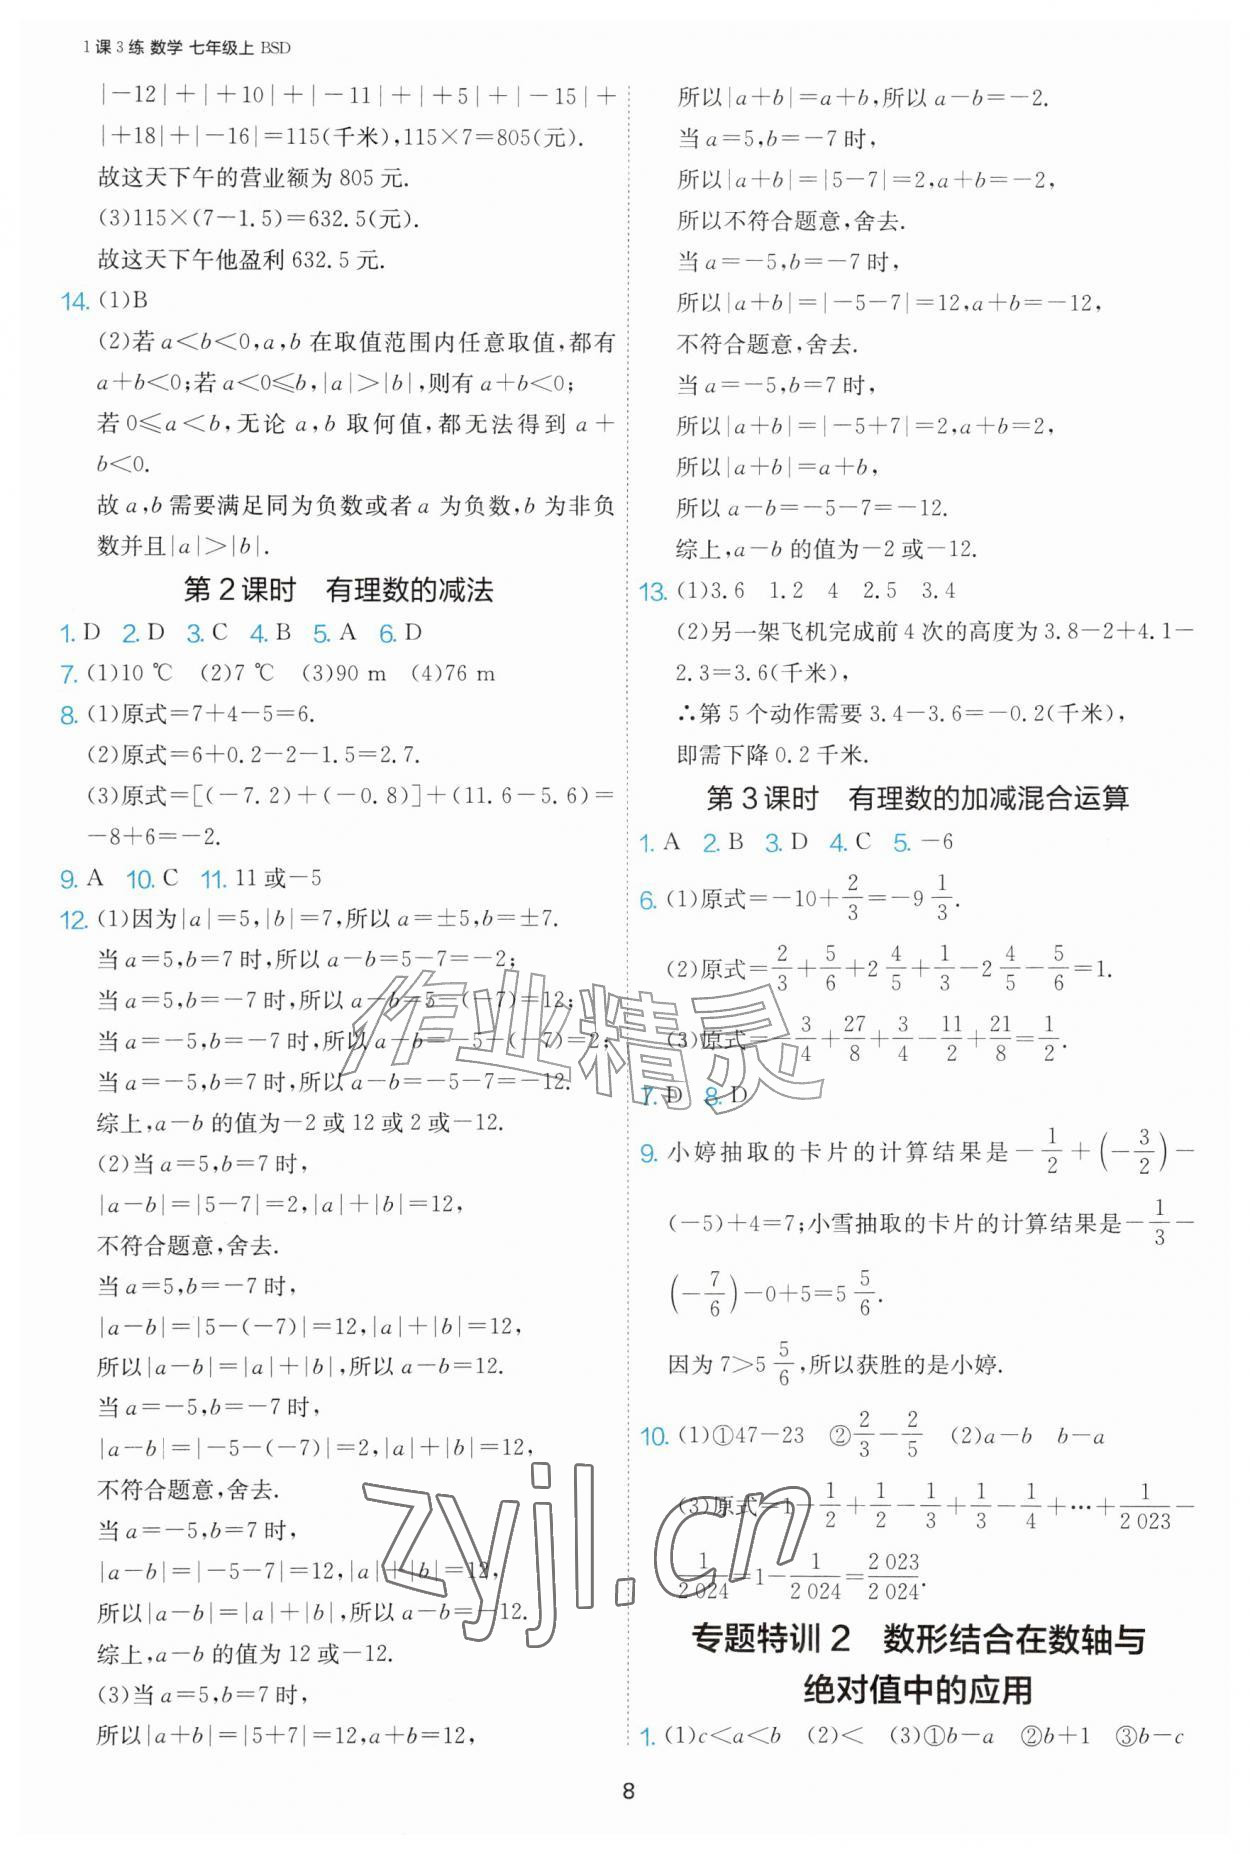 1 课 3 练 数学 七年级上 BSD
|-12|+|+10|+|-11|+|+5|+|-15|+
|+18|+|-16|=115(千米),115×7=805(元).
故这天下午的营业额为 805 元.
(3)115×(7-1.5)=632.5(元).
故这天下午他盈利 632.5 元.
14. (1)B
(2)若 a<b<0,a,b 在取值范围内任意取值,都有
a+b<0;若 a<0≤b,|a|>|b|,则有 a+b<0;
若 0≤a<b,无论 a,b 取何值,都无法得到 a+
b<0.
故 a,b 需要满足同为负数或者 a 为负数,b 为非负
数并且|a|>|b|.
第 2 课时 有理数的减法
1. D 2. D 3. C 4. B 5. A 6. D
7. (1)10 ℃ (2)7 ℃ (3)90 m (4)76 m
8. (1)原式=7+4-5=6.
(2)原式=6+0.2-2-1.5=2.7.
(3)原式=[(-7.2)+(-0.8)]+(11.6-5.6)=
-8+6=-2.
9. A 10. C 11. 11 或-5
12. (1)因为|a|=5,|b|=7,所以 a=±5,b=±7.
当 a=5,b=7 时,所以 a-b=5-7=-2;
当 a=5,b=-7 时,所以 a-b=5-(-7)=12;
当 a=-5,b=-7 时,所以 a-b=-5-(-7)=2;
当 a=-5,b=7 时,所以 a-b=-5-7=-12.
综上,a-b 的值为-2 或 12 或 2 或-12.
(2)当 a=5,b=7 时,
|a-b|=|5-7|=2,|a|+|b|=12,
不符合题意,舍去.
当 a=5,b=-7 时,
|a-b|=|5-(-7)|=12,|a|+|b|=12,
所以|a-b|=|a|+|b|,所以 a-b=12.
当 a=-5,b=-7 时,
|a-b|=|-5-(-7)|=2,|a|+|b|=12,
不符合题意,舍去.
当 a=-5,b=7 时,
|a-b|=|-5-7|=12,|a|+|b|=12,
所以|a-b|=|a|+|b|,所以 a-b=-12.
综上,a-b 的值为 12 或-12.
(3)当 a=5,b=7 时,
所以|a+b|=|5+7|=12,a+b=12,
所以|a+b|=a+b,所以 a-b=-2.
当 a=5,b=-7 时,
所以|a+b|=|5-7|=2,a+b=-2,
所以不符合题意,舍去.
当 a=-5,b=-7 时,
所以|a+b|=|-5-7|=12,a+b=-12,
不符合题意,舍去.
当 a=-5,b=7 时,
所以|a+b|=|-5+7|=2,a+b=2,
所以|a+b|=a+b,
所以 a-b=-5-7=-12.
综上,a-b 的值为-2 或-12.
13. (1)3.6 1.2 4 2.5 3.4
(2)另一架飞机完成前 4 次的高度为 3.8-2+4.1-
2.3=3.6(千米),
∴第 5 个动作需要 3.4-3.6=-0.2(千米),
即需下降 0.2 千米.
第 3 课时 有理数的加减混合运算
1. A 2. B 3. D 4. C 5. -6
6. (1)原式=-10+2/3=-9 1/3.
(2)原式=2/3+5/6+2 4/5+1/3-2 4/5-5/6=1.
(3)原式=-3/4+27/8+3/4-11/2+21/8=1/2.
7. D 8. D
9. 小婷抽取的卡片的计算结果是-1/2+(-3/2)-
(-5)+4=7;小雪抽取的卡片的计算结果是-1/3-
(-7/6)-0+5=5 5/6.
因为 7>5 5/6,所以获胜的是小婷.
10. (1)①47-23 ②2/3-2/5 (2)a-b b-a
(3)原式=1-1/2+1/2-1/3+1/3-1/4+…+1/2 023-
1/2 024=1-1/2 024=2 023/2 024.
专题特训 2 数形结合在数轴与
绝对值中的应用
1. (1)c<a<b (2)< (3)①b-a ②b+1 ③b-c
8
作业精灵
zyjl.cn